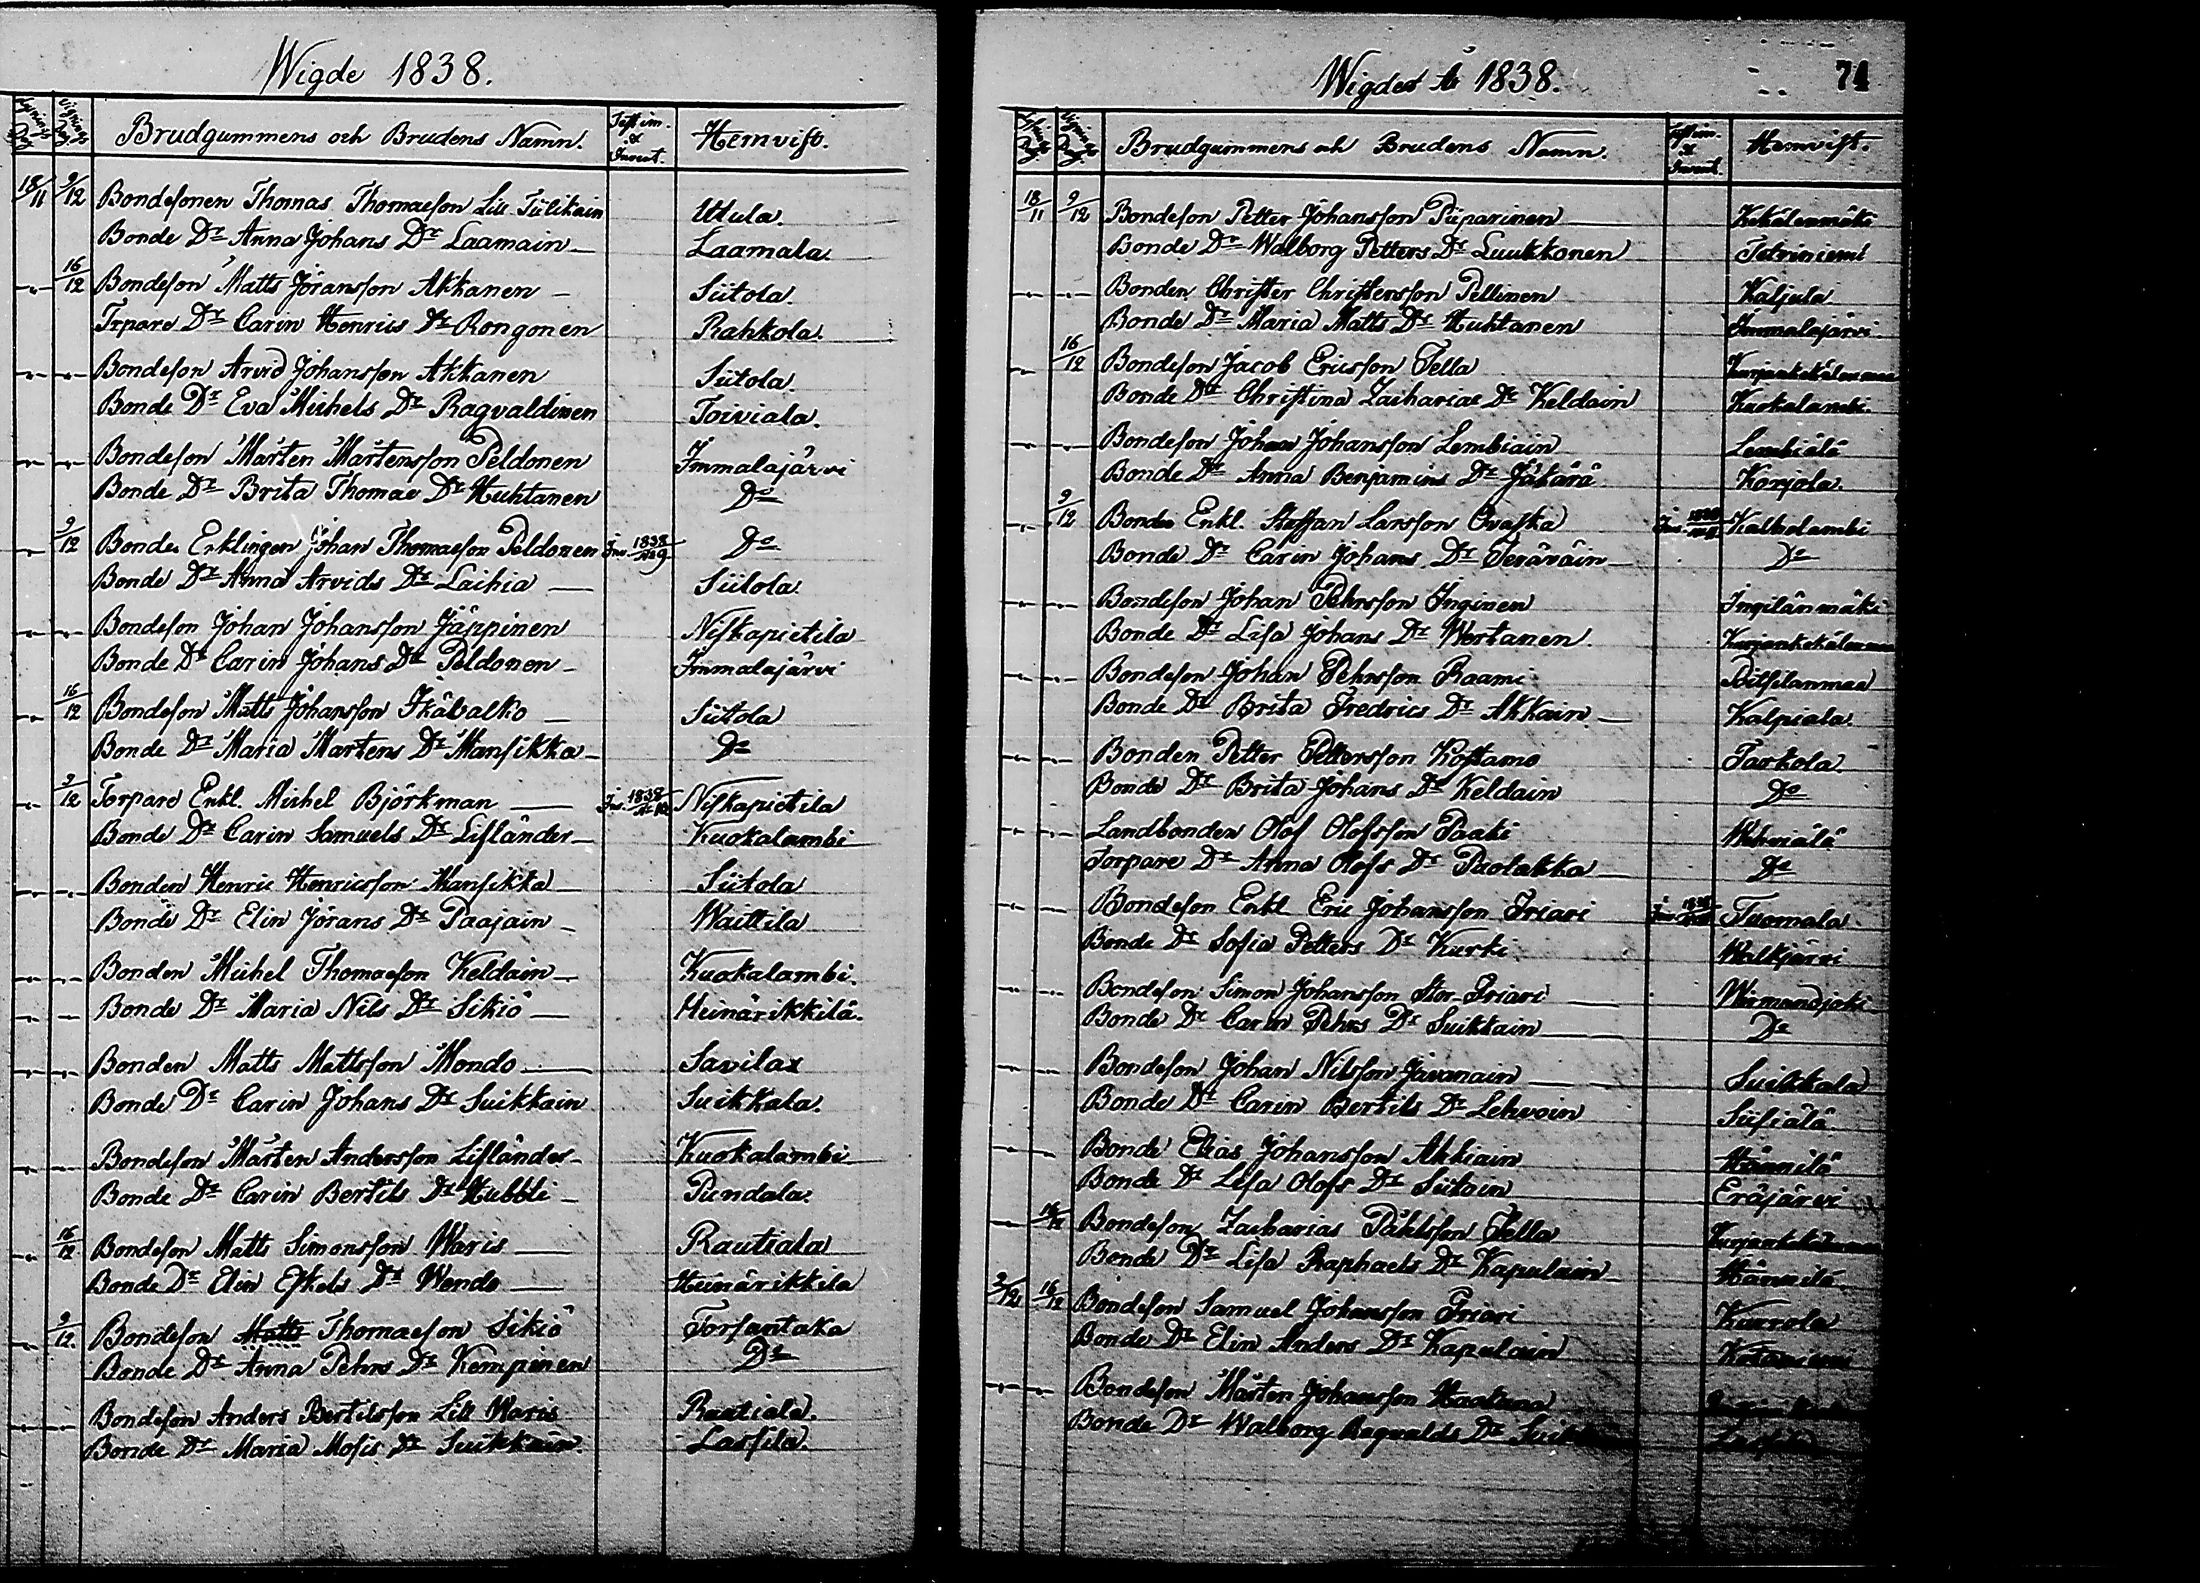 Wigde 1838.
Brudgummens och Brudens Namn. Testim. & Invent. Hemvist.
18/11 9/12 Bondesonen Thomas Thomaeson Lill Tiilikain Utula.
Bonde Dr Anna Johans Dr Laamain Laamala.
16/12 Bondeson Matts Jöransson Akkanen Siitola.
Trpare Dr Carin Henrics Dr Rongonen Rahkola.
Bondeson Arvid Johansson Akkanen Siitola.
Bonde Dr Eva Michels Dr Ragvaldinen Toiviala.
Bondeson Mårten Mårtensson Peldonen Immalajärvi
Bonde Dr Brita Thomae Dr Huhtanen Do
9/12 Bonde Enklingen Johan Thomaeson Peldonen Inv. 1838/No 9 Do
Bonde Dr Anna Arvids Dr Laihia Siitola.
Bondeson Johan Johansson Jäppinen Niskapietila
Bonde Dr Carin Johans Dr Peldonen Immalajärvi
16/12 Bondeson Matts Johansson Ikävalko Siitola
Bonde Dr Maria Mårtens Dr Mansikka Do
9/12 Torpare Enkl. Michel Björkman Inv. 1838/No 10 Niskapietila
Bonde Dr Carin Samuels Dr Lifländer Kuokalambi
Bonden Henric Henricsson Mansikka Siitola
Bonde Dr Elin Jörans Dr Paajain Waittila
Bonden Michel Thomaeson Keldain Kuokalambi.
Bonde Dr Maria Nils Dr Sikiö Heinärikkilä.
Bonden Matts Mattsson Mondo Savilax
Bonde Dr Carin Johans Dr Suikkain Suikkala.
Bondeson Mårten Andersson Lifländer Kuokalambi
Bonde Dr Carin Bertils Dr Hubbli Pundala.
16/12 Bondeson Matts Simonsson Waris Rautiala
Bonde Dr Elin Eskels Dr Wendo Heinärikkila
9/12. Bondeson Matts Thomaeson Sikiö Torsantaka
Bonde Dr Anna Pehrs Dr Kempinen Do
Bondeson Anders Bertilsson Lill Waris Rautiala.
Bonde Dr Maria Mosis Dr Suikkain. Lassila.
Wigde År 1838. 74
Brudgummens och Brudens Namn. Testim. & Invent. Hemvist.
18/11 9/12 Bondeson Petter Johansson Piiparinen Kekälenmäki
Bonde Dr Walborg Petters Dr Luukkonen Tetriniemi
Bonden Christer Christersson Pellinen Kaljula
Bonde Dr Maria Matts Dr Huhtanen Immalajärvi
16/12 Bondeson Jacob Ericsson Tella
Bonde Dr Christina Zacharias Dr Keldain Kuokalambi.
Bondeson Johan Johansson Lembiain Lembiälä
Bonde Dr Anna Benjamins Dr Jäkärä Korjola.
9/12 Bonde Enkl. Staffan Larsson Ovaska Inv. Kalholambi
Bonde Dr Carin Johans Dr Teräväin Do
Bondeson Johan Pehrsson Inginen Ingilänmäki
Bonde Dr Lisa Johans Dr Wertanen.
Bondeson Johan Pehrsson Raami Poitsilanmaa
Bonde Dr Brita Fredrics Dr Akkain Kalpiala.
Bonden Petter Pettersson Kostamo Tarkola.
Bonde Dr Brita Johans Dr Keldain Do
Landbonden Olof Olofsson Paaki
Torpare Dr Anna Olofs Dr Partakka Do
Bondeson Enkl Eric Johansson Friari Inv. Tuomala
Bonde Dr Sofia Petters Dr Kurki Walkjärvi
Bondeson Simon Johansson Stor-Friari Wirmandjoki
Bonde Dr Carin Pehrs Dr Suikkain Do
Bondeson Johan Nilsson Javanain Suikkala
Bonde Dr Carin Bertils Dr Lehvoin Siisiälä
Bonde Elias Johansson Akkiain Hännilä
Bonde Dr Lisa Olofs Dr Siitoin Eräjärvi
16/12 Bondeson Zacharias Påhlsson Tella
Bonde Dr Lisa Raphaels Dr Kapulain Hännilä
2/12 16/12 Bondeson Samuel Johansson Friari Kurrola
Bonde Dr Elin Anders Dr Kapulain Kotaniemi
Bondeson Mårten Johansson Haatana
Bonde Dr Walborg Ragvalds Dr